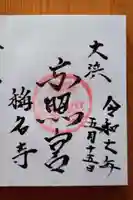 大浜
令和七年
五月十五日
東照宮
称名寺